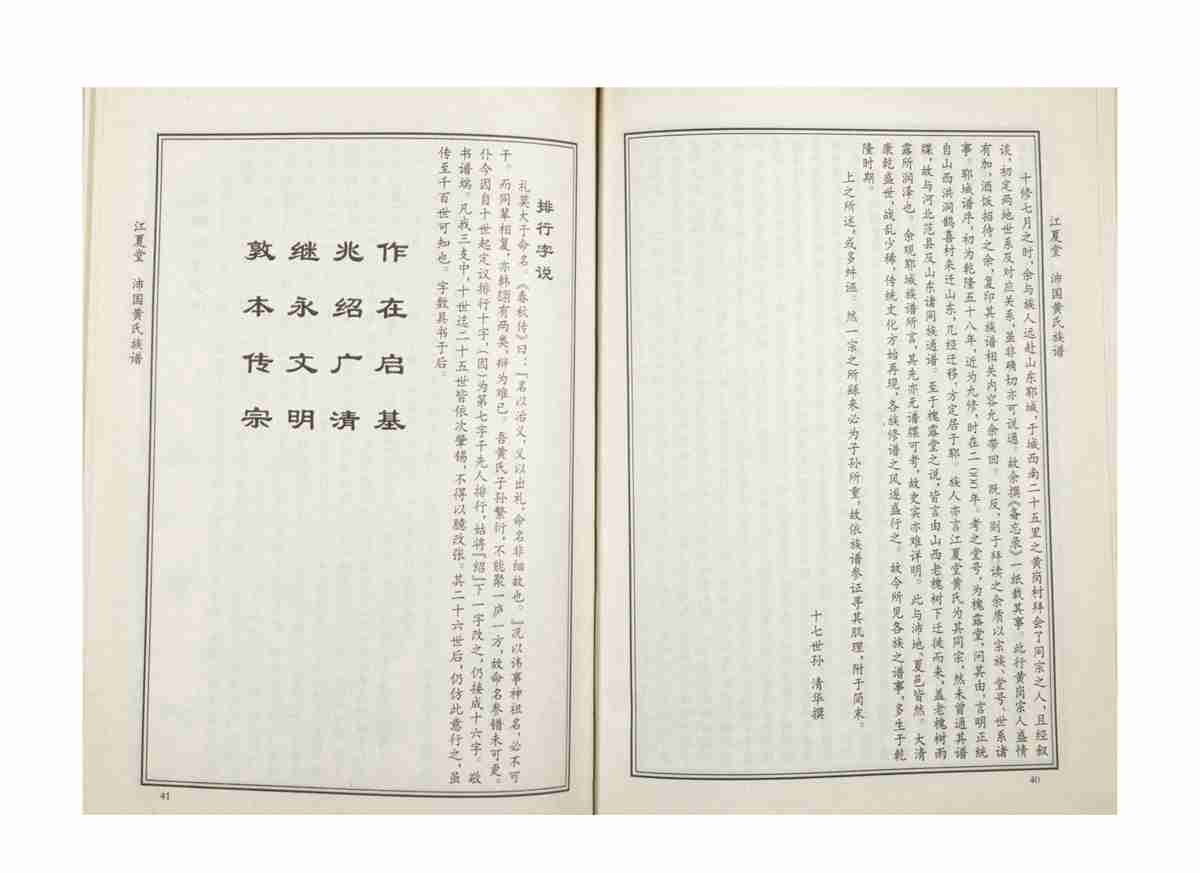 江夏堂 沛国黄氏族谱
十修七月之时,余与族人远赴山东郓城,于城西南二十五里之黄岗村拜会了同宗之人,且经叙
谈,初定两地世系及对应关系,虽非确切亦可说通。故余撰《备忘录》一纸载其事。此行黄岗宗人盛情
有加,酒饭招待之余,复印其族谱相关内容允余带回。既反,则于拜读之余质以宗族、堂号、世系诸
事。郓城谱序,初为乾隆五十八年,近为九修,时在二〇〇〇年。考之堂号,为槐露堂,问其由,言明正统
自山西洪洞鹤喜村来迁山东,几经迁移,方定居于郓。族人亦言江夏堂黄氏为其同宗,然未曾通其谱
牒,故与河北范县及山东诸同族通谱。至于槐露堂之说,皆言由山西老槐树下迁徙而来,盖老槐树雨
露所润泽也。余观郓城族谱所言,其先亦无谱牒可考,故史实亦难详明。此与沛地、夏邑皆然。大清
康乾盛世,战乱少稀,传统文化方始再现,各族修谱之风遂盛行之。故今所见各族之谱事,多生于乾
隆时期。
上之所述,或多舛诬。然一宗之所躔未必为子孙所重,故依族谱参证寻其肌理,附于简末。
十七世孙 清华撰
40
排行字说
礼莫大于命名。《春秋传》曰:『名以治义,义以出礼,命名非细故也。』况以讳事神祖名,必不可
干。而同辈相复,亦韩翃有两类,辩为难已。吾黄氏子孙繁衍,不能聚一庐一方,故命名参错未可更。
仆今因自十世起定议排行十字,(因)为第七字干先人排行,姑将『绍』下一字改之,仍接成十六字。敬
书谱端。凡我三支中,十世迄二十五世皆依次肇锡,不得以臆改张。其二十六世后,仍仿此意行之,虽
传至千百世可知也。字数具书于后。
作在启基
兆绍广清
继永文明
敦本传宗
江夏堂 沛国黄氏族谱
41